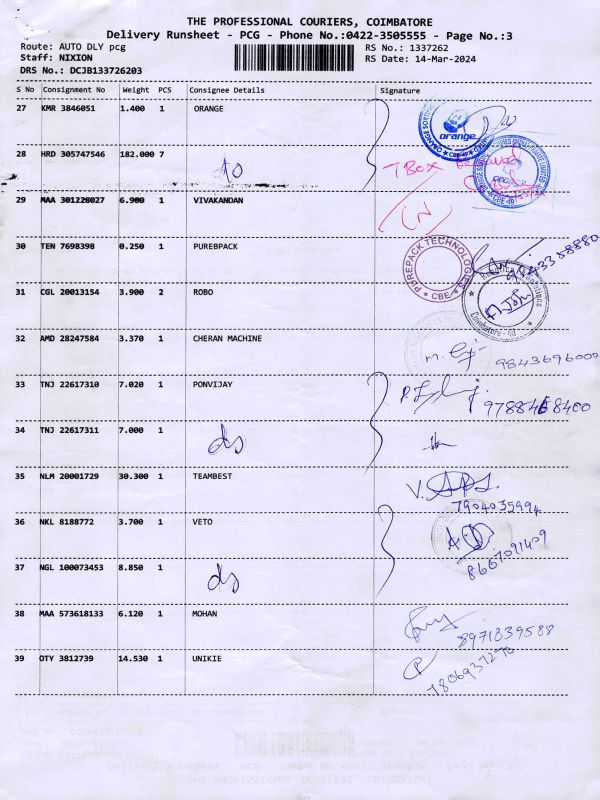 THE PROFESSIONAL COURIERS, COIMBATORE
Delivery Runsheet - PCG - Phone No.:0422-3505555 - Page No.:3
Route: AUTO DLY pcg
RS No.: 1337262
Staff: NIXION
RS Date: 14-Mar-2024
DRS No.: DCJB133726203
S No Consignment No Weight PCS Consignee Details Signature
27 KMR 3846051 1.400 1 ORANGE
orange
CBE-49
28 HRD 305747546 182.000 7 do
7 Box Received
CBE 49
29 MAA 301228027 6.900 1 VIVAKANDAN
30 TEN 7698398 0.250 1 PUREBPACK
PUREPACK TECHNOLOGIES
CBE
9843358880
31 CGL 20013154 3.900 2 ROBO
Coimbatore - 49
32 AMD 28247584 3.370 1 CHERAN MACHINE
9843696000
33 TNJ 22617310 7.020 1 PONVIJAY
9788468400
34 TNJ 22617311 7.000 1 do
35 NLM 20001729 30.300 1 TEAMBEST
7904035994
36 NKL 8188772 3.700 1 VETO
8667091409
37 NGL 100073453 8.850 1 do
38 MAA 573618133 6.120 1 MOHAN
8971839588
39 OTY 3812739 14.530 1 UNIKIE
7806937270